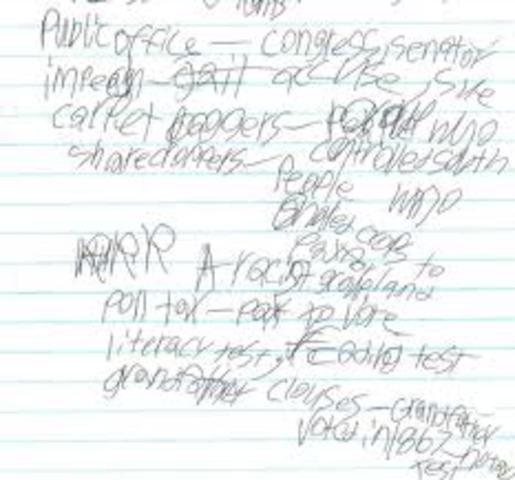 Public office — congress, senator
impeach — accuse, sue
carpet baggers — people who
sharecroppers — controlled south
People who
crops
to
land
A racist group
poll tax — pay to vote
literacy test, reading test
grandfather clauses — grandfather
voted in 1867 no tax
test